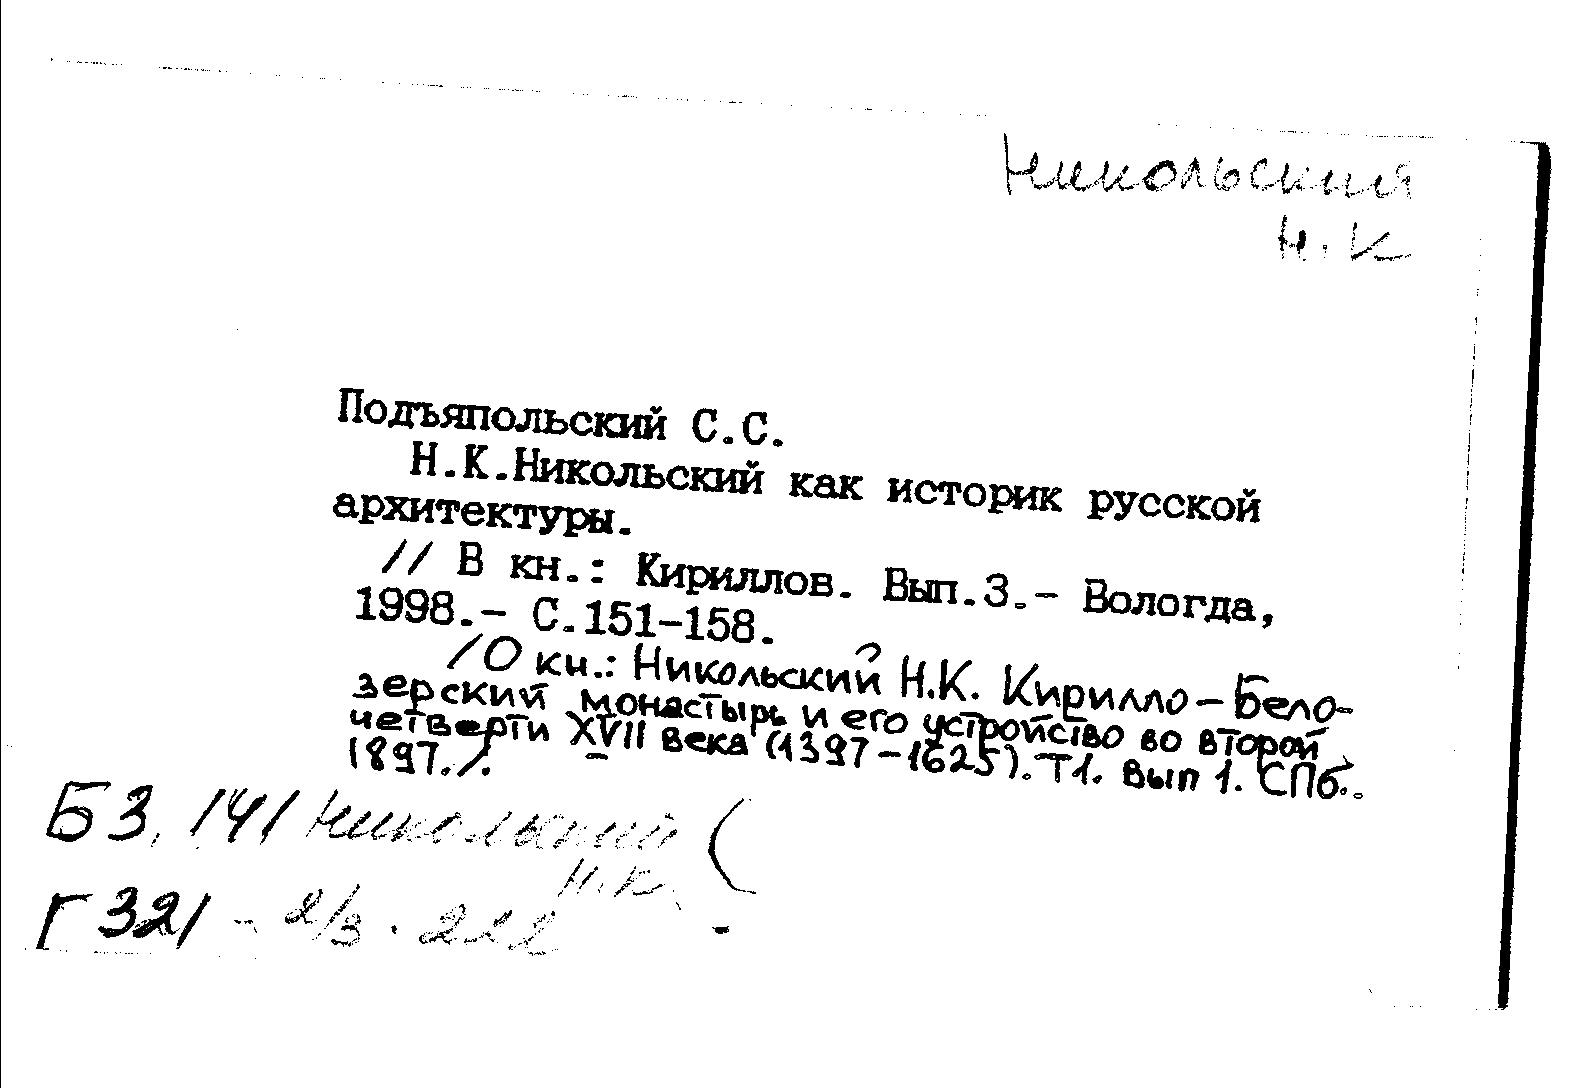 Никольский
Н.К
Подъяпольский С.С.
Н.К.Никольский как историк русской
архитектуры.
// В кн.: Кириллов. Вып.3.- Вологда,
1998.- С.151-158.
/О кн.: Никольский Н.К. Кирилло-Бело-
зерский монастырь и его устройство во второй
четверти XVII века (1397-1625). Т1. Вып 1. СПб..
1897./.
Б3.141 Никольский (
Н.К.
Г321 - 2/3. 222